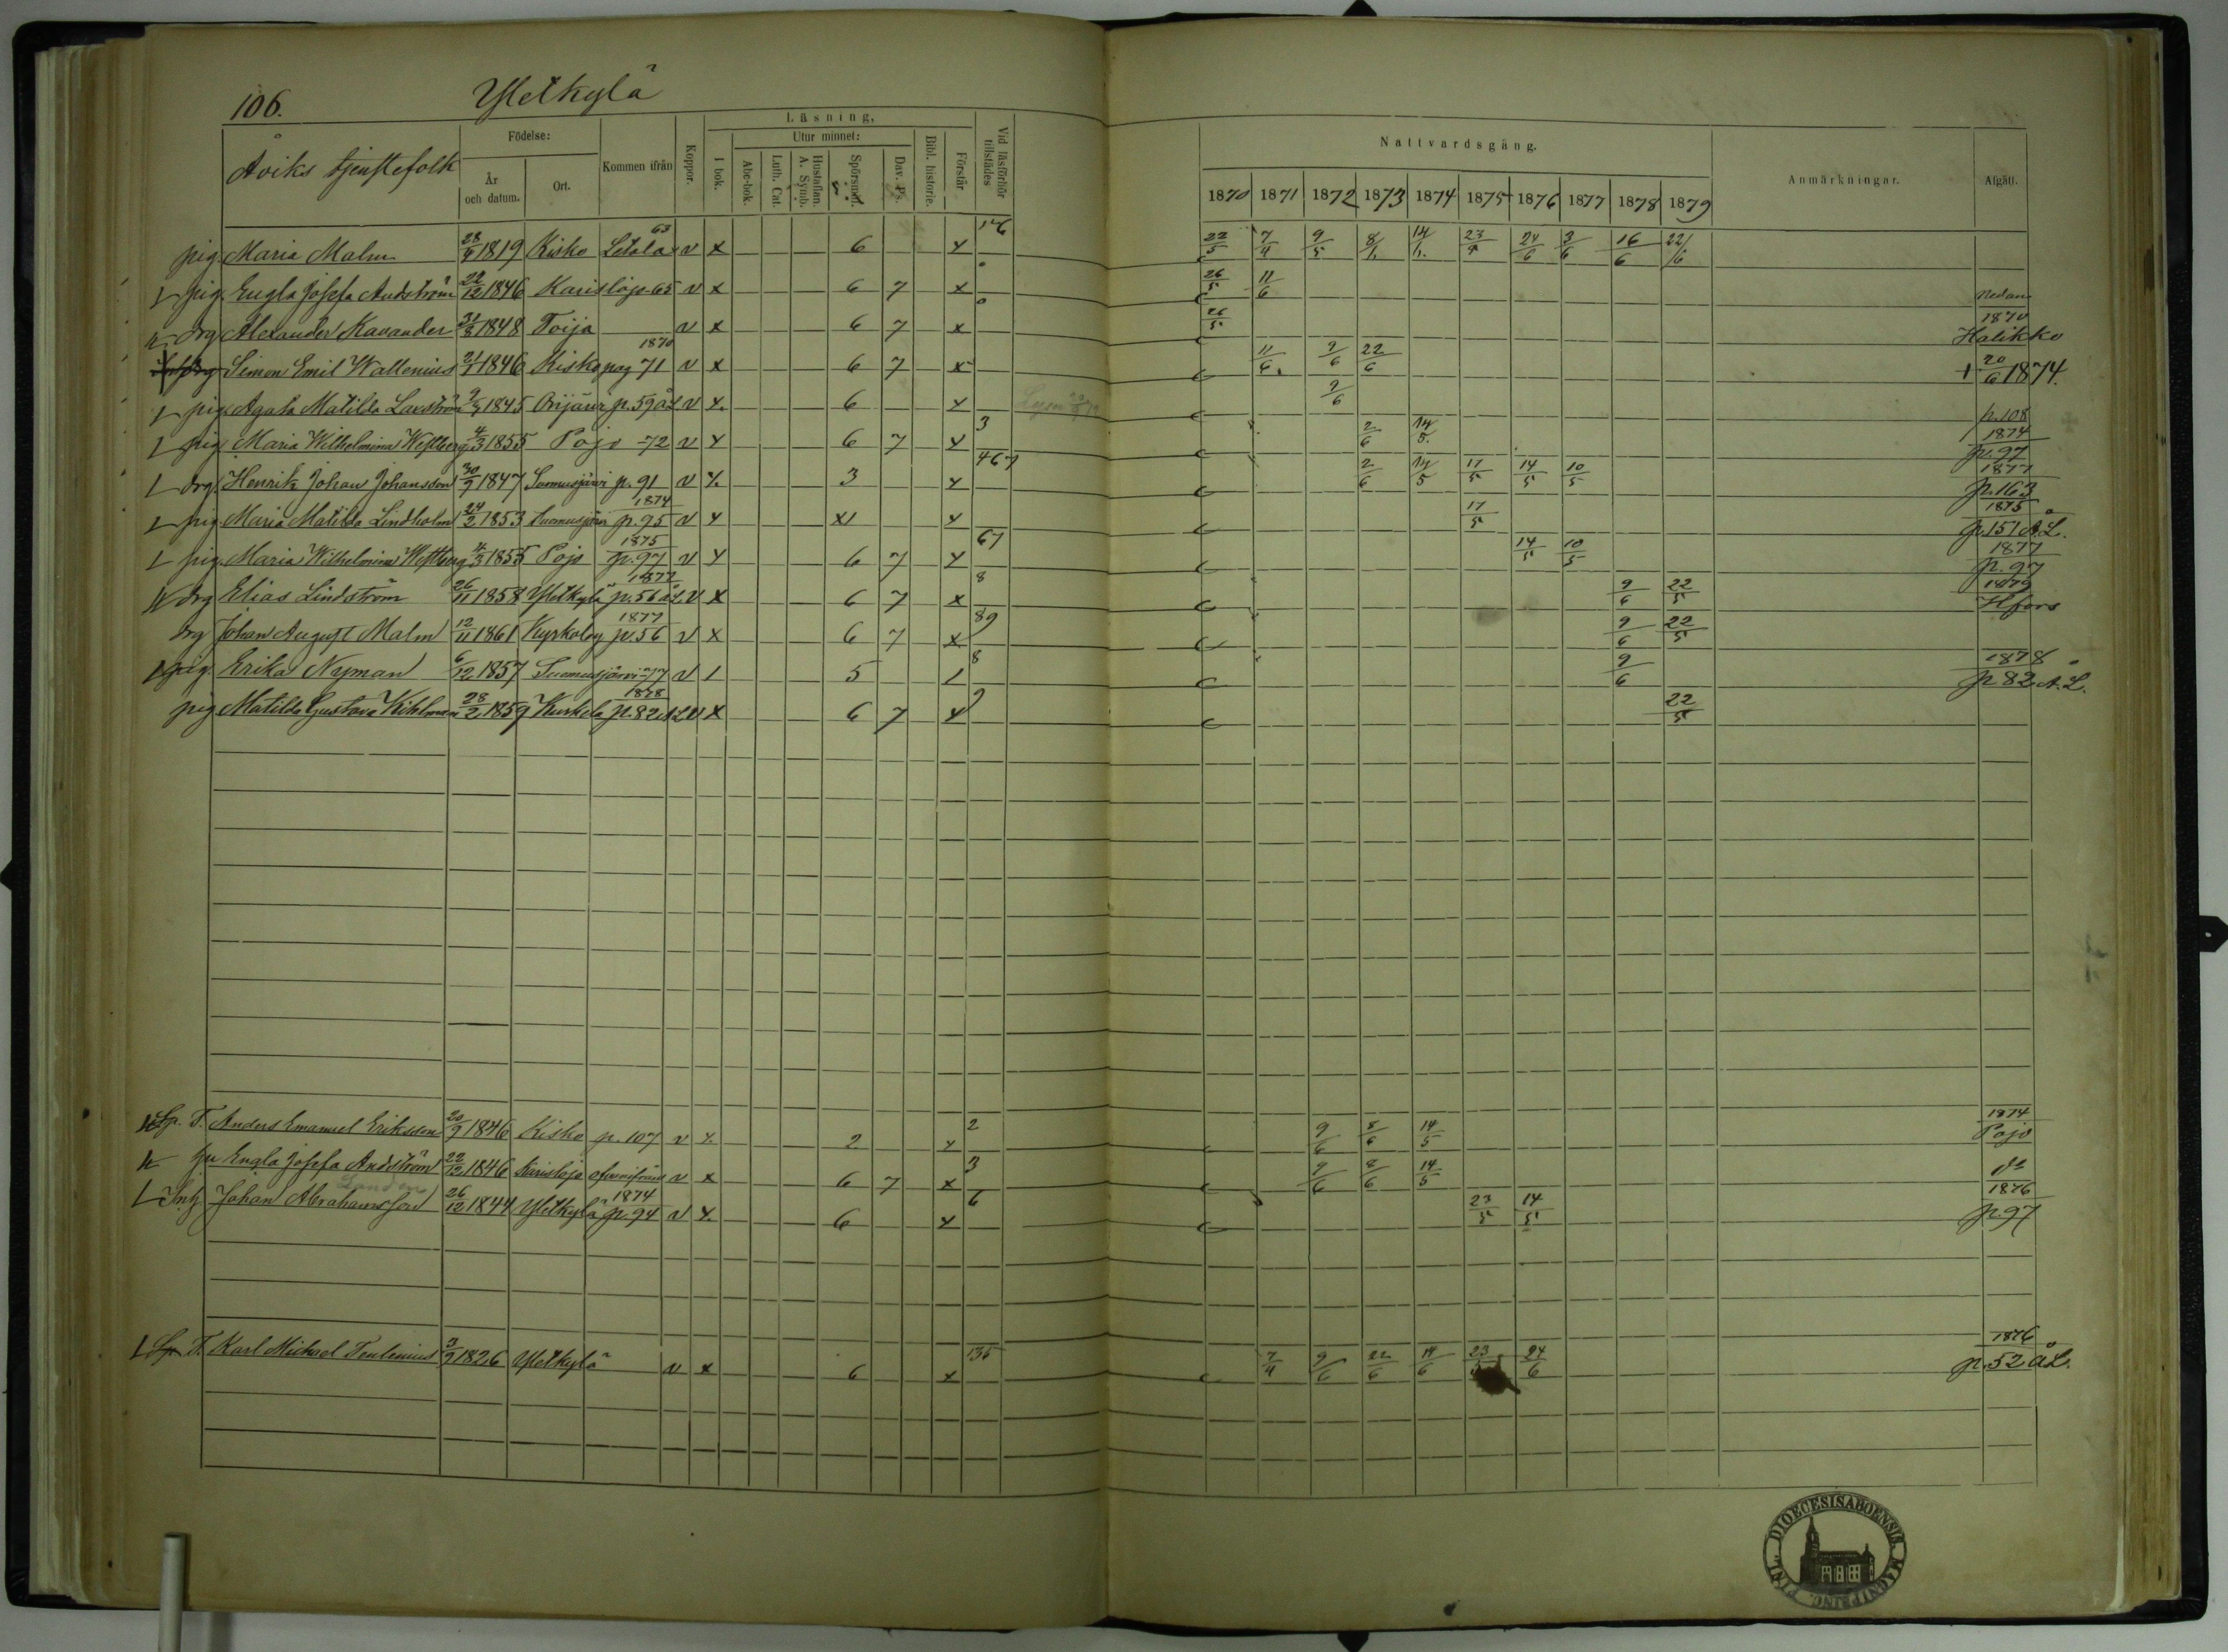 106. Yletkylä
Åviks tjenstefolk
Födelse:
År och datum.
Ort.
Kommen ifrån
Koppor.
Läsning,
I bok.
Utur minnet:
Abc-bok.
Luth. Cat.
Hustaflan. A. Symb.
Spörsmål.
Dav. Ps.
Bibl. historie.
Förstår
Vid läsförhör tillstädes
Nattvardsgång.
1870 1871 1872 1873 1874 1875 1876 1877 1878 1879
Anmärkningar.
Afgått.
pig. Maria Malm 28/4 1819 Kisko Letala 63 v x 6 x 22/5 7/4 9/5 23/4 24/6 3/6 16/6 22/6
pig. Engla Josefa Andström 22/12 1846 Karislojo 65 v x 6 7 x 26/5 11/6 nedan
drg Alexander Kavander 31/8 1848 Toija v x 6 7 x 26/5 1870 Halikko
Simon Emil Wallenius 21/1 1846 Kisko 1870 pag 71 v x 6 7 x 11/6 9/6 22/6 † 20/6 1874.
pig. Agata Matilda Laxström 1845 Orijärvi p. 59 ÅL v x 6 x 9/6 p. 108
pig. Maria Wilhelmina Westberg 4/3 1855 Pojo -72 v x 6 7 x 3 2/6 14/5 1874 p. 97
drg. Henrik Johan Johansson 30/9 1847 Suomusjärvi p. 91 v x 3 x 467 2/6 14/5 17/5 14/5 10/5 1877 p. 163
pig. Maria Matilda Lindholm 24/2 1853 Suomusjärvi 1874 p. 95 v x x 17/5 1875 p. 151 ÅL.
pig. Maria Wilhelmina Westberg 4/3 1855 Pojo 1875 p. 97 v x 6 7 x 67 14/5 10/5 1877 p. 97
drg Elias Lindström 26/11 1858 Yletkylä 1877 p. 56 ÅL. v x 6 7 x 8 9/6 22/5 1879 Hfors
drg Johan August Malm 12/11 1861 Kyrkoby 1877 p. 56 v x 6 7 x 89 9/6 22/5
pig. Erika Nyman 6/12 1857 Suomusjärvi -77 v 1 5 1 8 9/6 1878 p 82 ÅL.
pig Matilda Gustava Kihlman 28/2 1859 Kurkela 1878 p. 82 ÅL v x 6 7 x 9 22/5
Sp. T. Anders Emanuel Eriksson 20/9 1846 Kisko p. 107 v x 2 x 2 9/6 8/6 14/5 1874 Pojo
hu Engla Josefa Andström 22/12 1846 Karislojo ofvanifrån v x 6 7 x 3 9/6 8/6 14/5 do
Inh. Johan Abrahamsson Landen 26/12 1844 Yletkylä 1874 p. 94 v x 6 x 6 23/5 14/5 1876 p. 97
Sp. T. Karl Michael Tenlenius 1826 Yletkylä v x 6 x 135 7/4 9/6 22/6 14/6 23/5 24/6 1876 p. 52 ÅL.